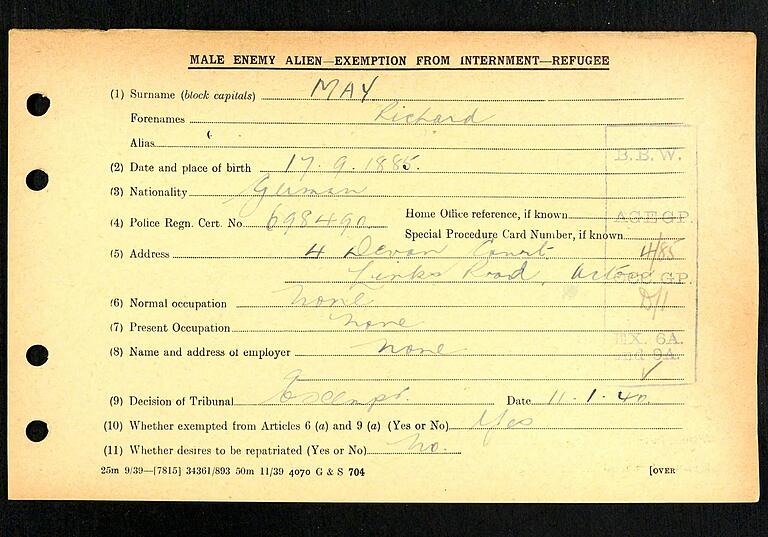 MALE ENEMY ALIEN—EXEMPTION FROM INTERNMENT—REFUGEE
(1) Surname (block capitals) MAY
Forenames Richard
Alias
(2) Date and place of birth 17.9.1885.
(3) Nationality German
(4) Police Regn. Cert. No. 698490
Home Office reference, if known
Special Procedure Card Number, if known
(5) Address 4 Devon Court
Links Road, Acton
(6) Normal occupation none
(7) Present Occupation none
(8) Name and address of employer none
(9) Decision of Tribunal Exempt. Date 11.1.40.
(10) Whether exempted from Articles 6 (a) and 9 (a) (Yes or No) Yes
(11) Whether desires to be repatriated (Yes or No) No.
25m 9/39—[7815] 34361/893 50m 11/39 4070 G & S 704
[OVER
B.B.W.
AGE GP.
4/85
GP.
D/1
EX. 6A.
and 9A.
✓